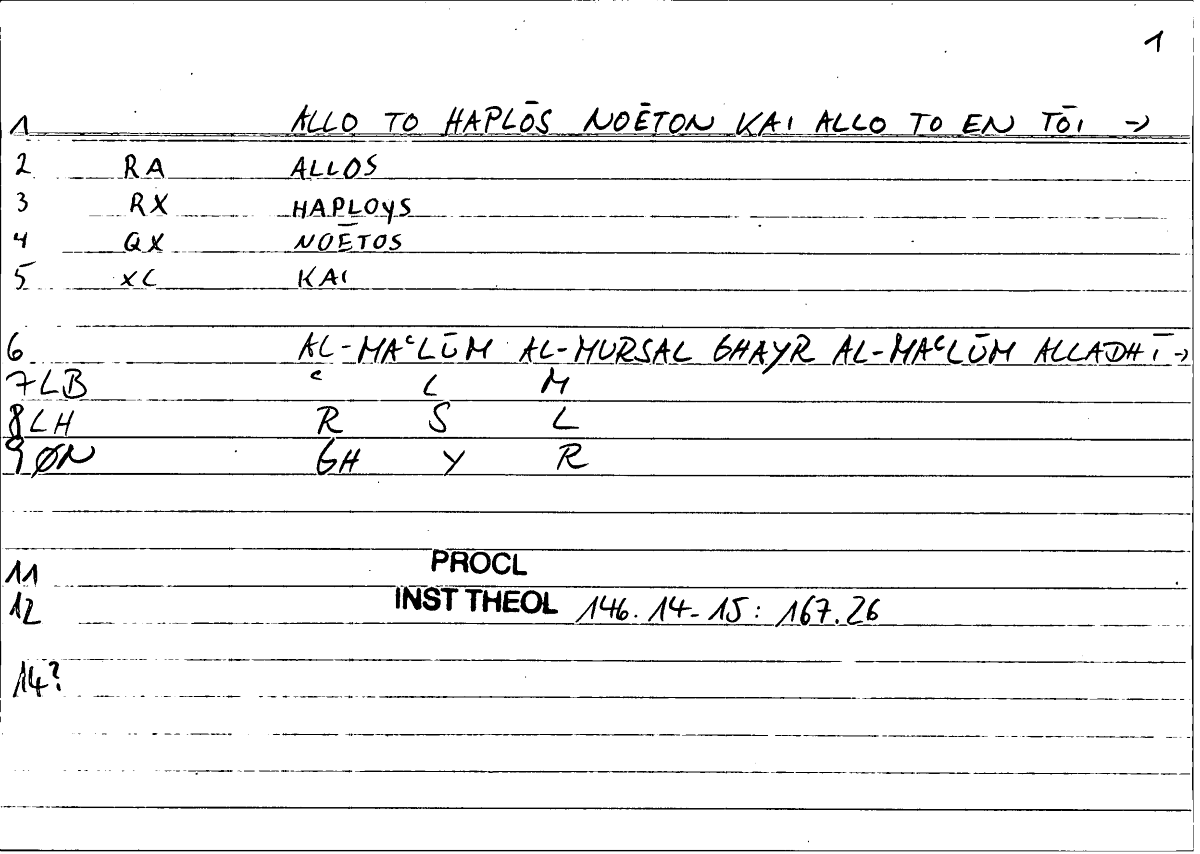 1
1 ALLO TO HAPLŌS NOĒTON KAI ALLO TO EN TŌI →
2 RA ALLOS
3 RX HAPLOYS
4 QX NOĒTOS
5 XC KAI
6 AL-MAʿLŪM AL-MURSAL GHAYR AL-MAʿLŪM ALLADHĪ →
7 LB ʿ L M
8 LH R S L
9 ØN GH Y R
11 PROCL
12 INST THEOL 146.14-15: 167.26
14?